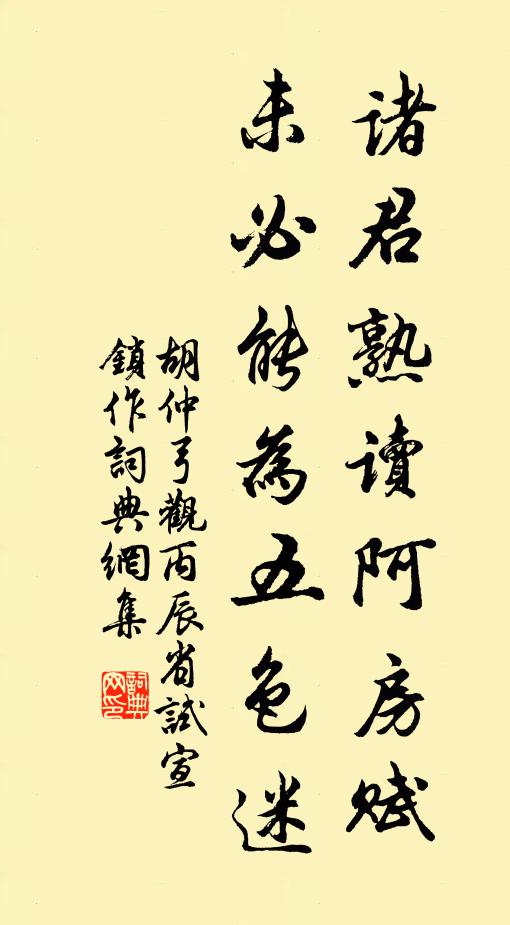 諸君熟讀阿房賦
未必能為五色迷
胡仲弓觀丙辰省試宣
鎖作詞典網集
詞典網印